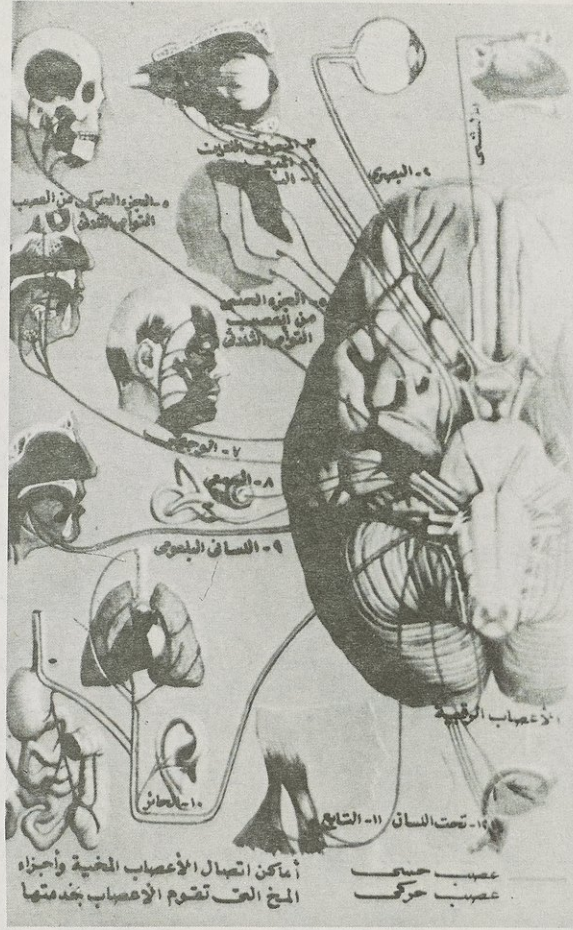 الشمى
٢- البصرى
٣- المحرك
٥- الجزء الحركى من العصب
التوأمى الثلاثى
٥- الجزء الحسى
من العصب
التوأمى الثلاثى
٧- الوجهى
٨- السمعى
٩- اللسانى البلعومى
الأعصاب
١٠- الحائر
١١- التابع
١٢- تحت اللسان
أماكن اتصال الأعصاب المخية وأجزاء
المخ التى تقوم الأعصاب بخدمتها
عصب حسى
عصب حركى